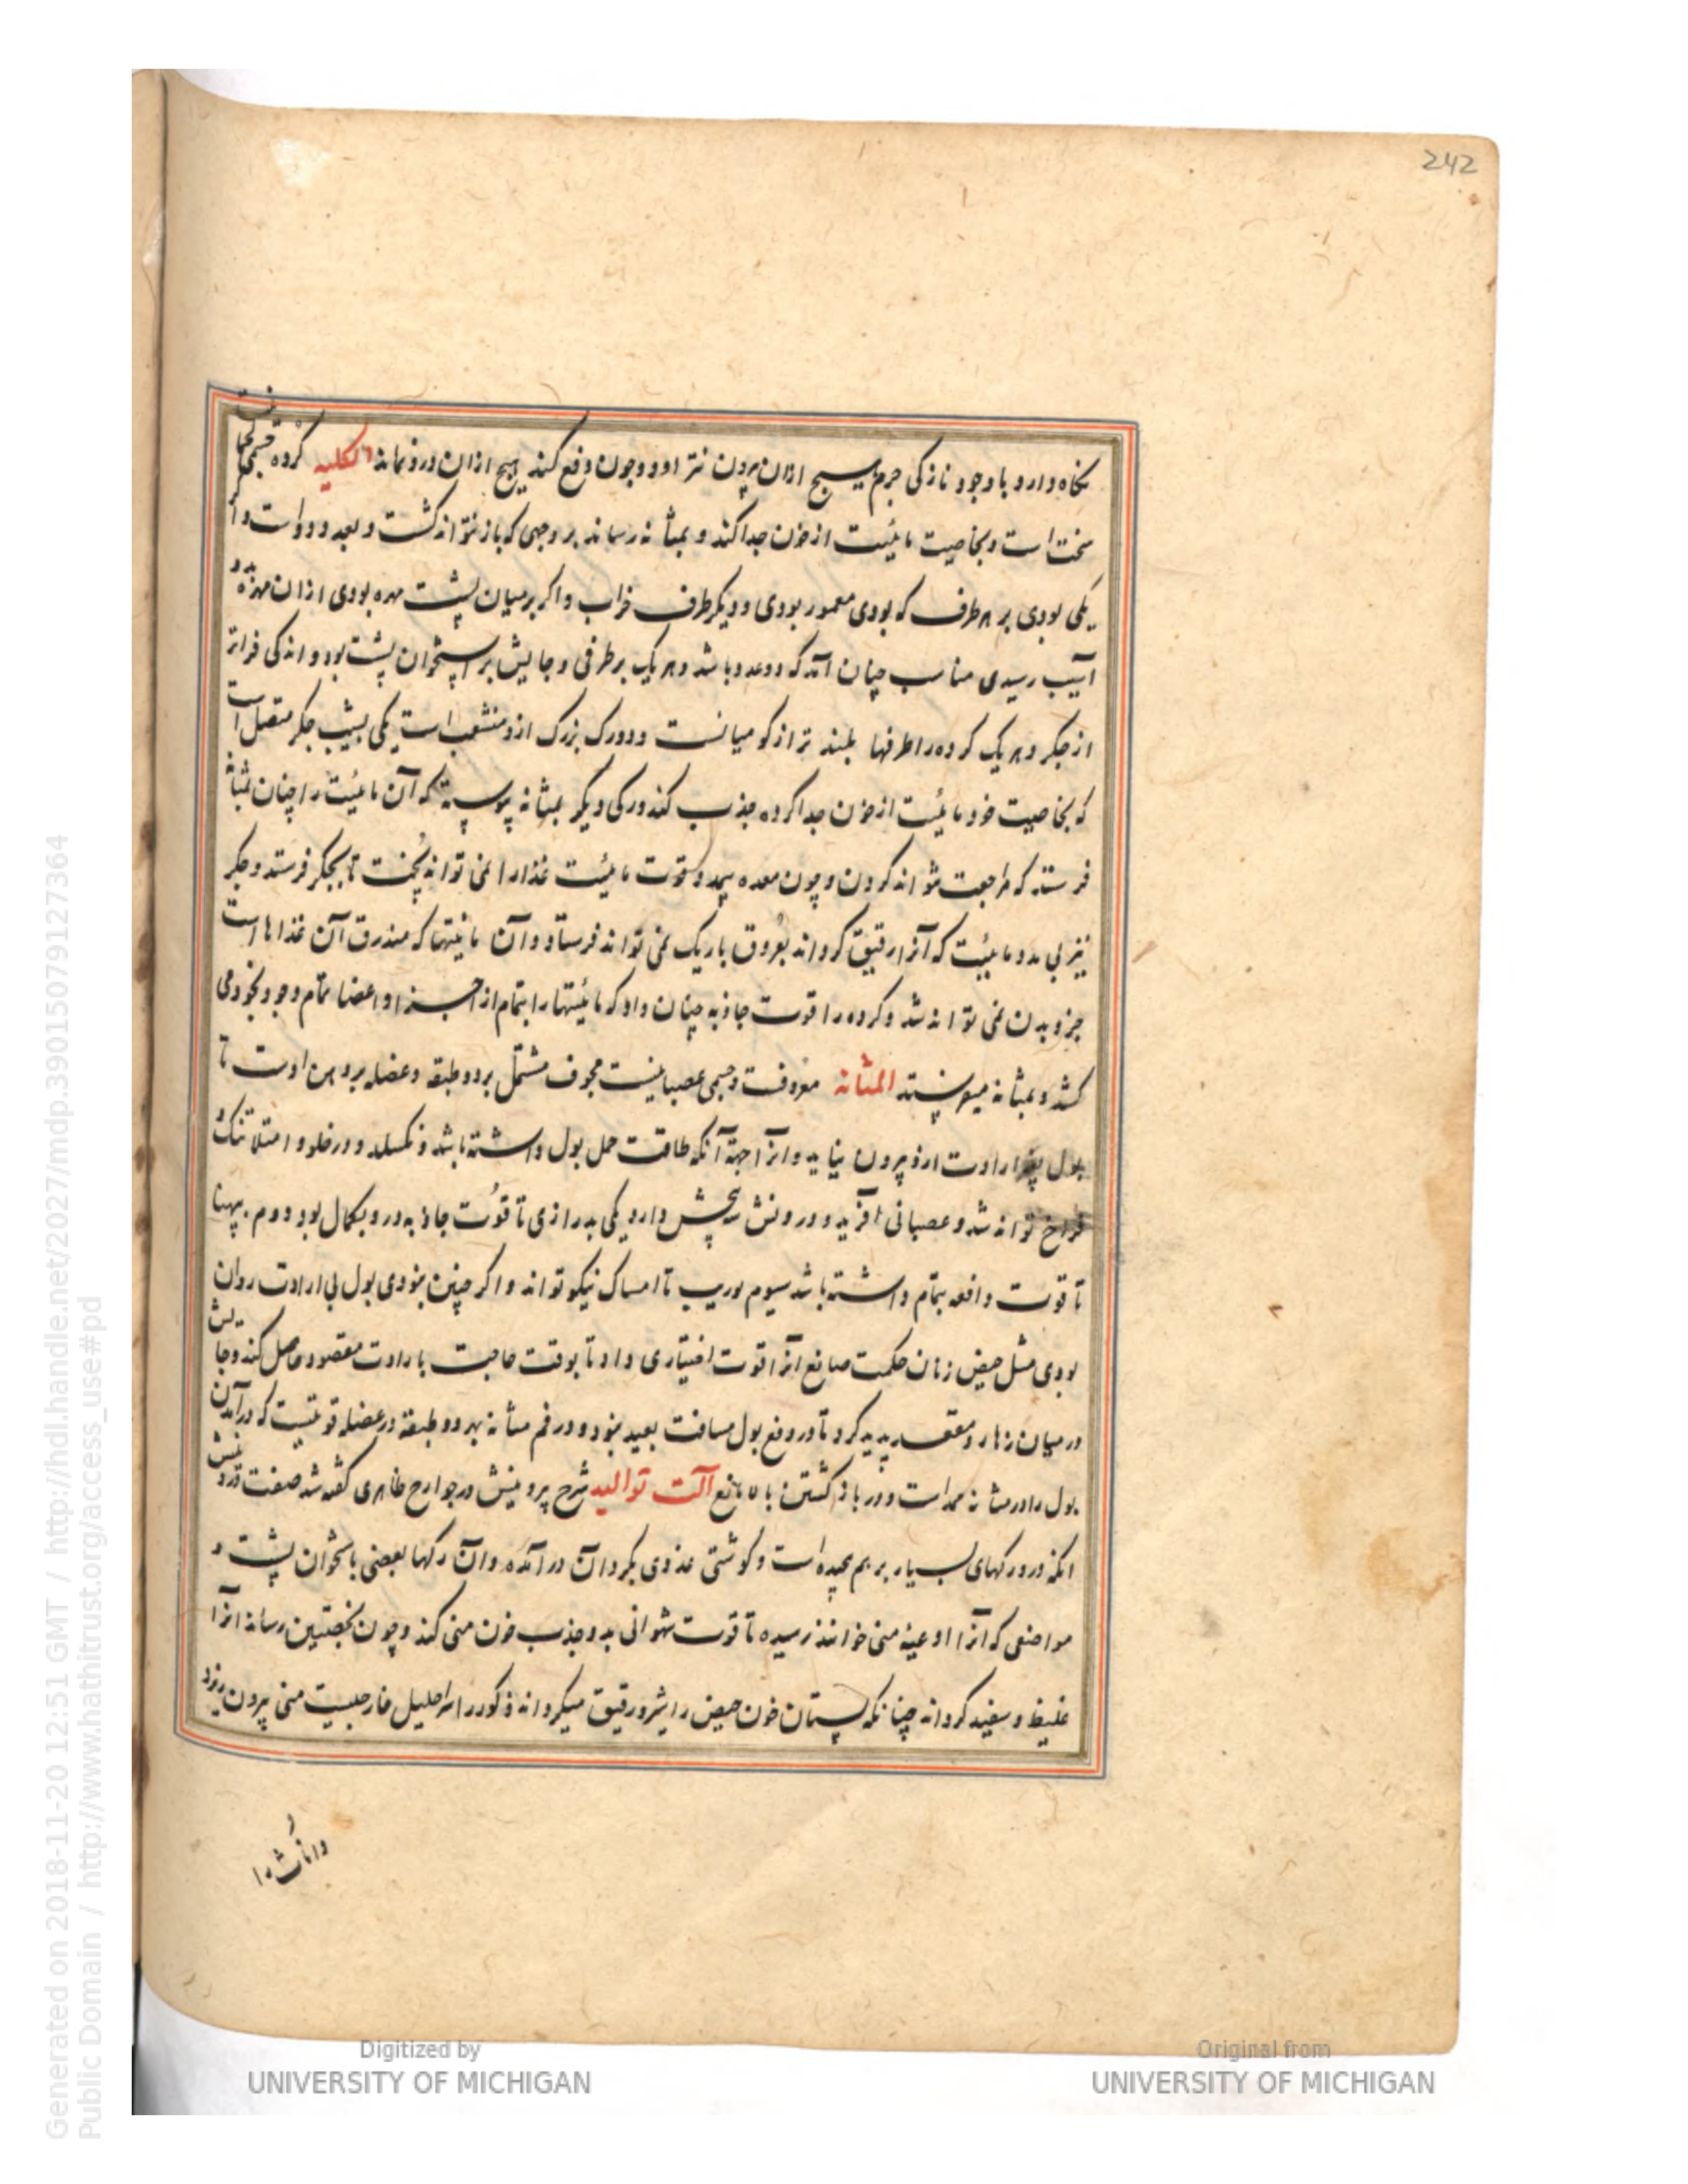 242
نگاه دارد با وجود نازکی جرم هیچ ازان بیرون نتراود و چون دفع کند هیچ ازان درو نماند الکلیه گرده جسمی
سخت است و بخاصیت مائیت از خون جدا کند و بمثانه رساند بر وجهی که باز نتواند گشت و بعدد دو است و اگر
یکی بودی بر هر طرف که بودی معمور بودی و دیگر طرف خراب و اگر بر میان پشت مهره بودی ازان مهره
آسیب رسیدی مناسب چنان آمد که دو عدد باشد و هر یک بر طرفی و جایش بر استخوان پشت بود و اندکی فراتر
از جکر و هر یک کرده را طرفها بلند تر از کو میانست و دو رک بزرک ازو منشعب است یکی بشیب جکر متصل است
که بخاصیت خود مائیت از خون جدا کرده جذب کند و رکی دیکر بمثانه پیوسته که آن مائیت را چنان بمثانه
فرستد که مراجعت نتواند کردن و چون معده بی مدد قوت مائیت غذا را نمی تواند پخت تا بجکر فرستد و جکر
نیز بی مدد مائیت که آنرا رقیق کرداند بعروق باریک نمی تواند فرستاد و آن مائیتها که مبذرق آن غذاها است
جزو بدن نمی تواند شد و کرده را قوت جاذبه چنان داد که مائیتها را بتمام از اجزا و اعضا تمام وجود بخود می
کشد و بمثانه میپیوندد المثانه معروفست و جسمی عصبانیست مجوف مشتمل بر دو طبقه و عضله بر دهن اوست تا
بول بی ارادت ازو بیرون نیاید و انرا جهة آنکه طاقت حمل بول داشته باشد و نکسلد و در خلو و امتلا تنک و
فراخ تواند شد و عصبانی آفرید و درونش سه پخش دارد یکی بدرازی تا قوت جاذبه درو بکمال بود دوم بپهنا
تا قوت دافعه بتمام داشته باشد سیوم بوریب تا امساک نیکو تواند و اکر چنین نبودی بول بی ارادت روان
بودی مثل حیض زنان حکمت صانع انرا قوت اختیاری داد تا بوقت حاجت بارادت مقصود حاصل کند و جایش
در میان زهار و مقعد پدید کرد تا در دفع بول مسافت بعید نبود و در فم مثانه بهر دو طبقه در عضله قوتیست که در آمدن
بول را در مثانه ممد است و در باز کشتن بالا مانع آلت توالید شرح بیرونیش در جوارح ظاهری کفته شد صفت درونیش
انکه درو رکهای بسیار بر هم پیچیده است و کوشتی غدوی بکرد آن در آمده و آن رکها بعضی باستخوان پشت و
مواضعی که آنرا اوعیة منی خوانند رسیده تا قوت شهوانی بدو جذب خون منی کند و چون بخصتین رساند انرا
غلیظ و سفید کرداند چنانکه پستان خون حیض را شیر و رقیق میکرداند ذکور را سر احلیل خارجیست منی بیرون ریزد
و اناث را